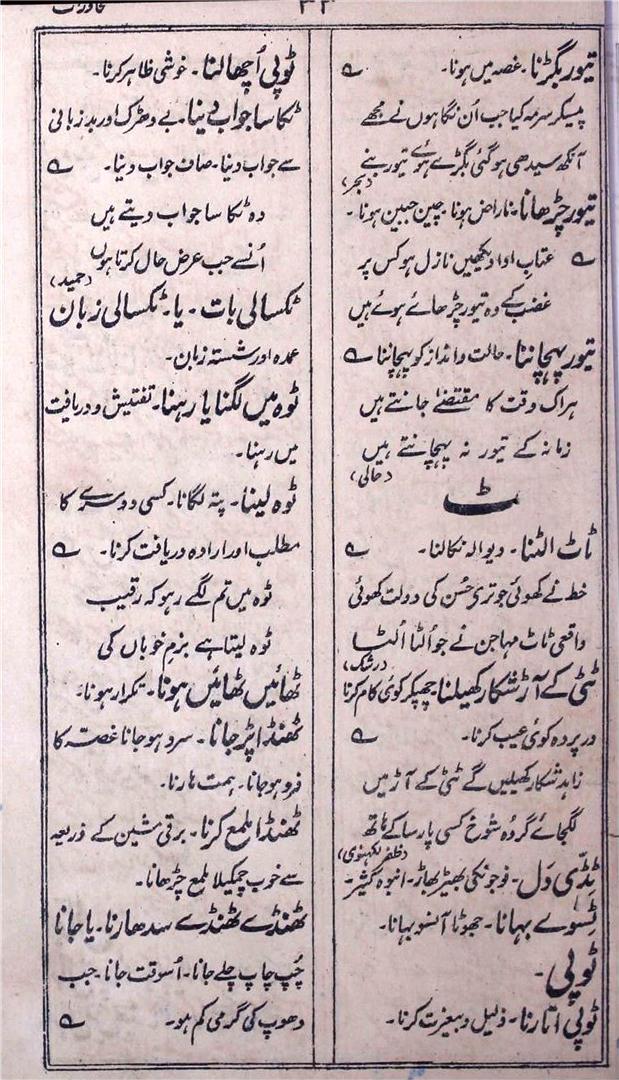 ۳۳
تیور بگڑنا۔ غصہ میں ہونا۔ ؎
پیسکر سرمہ کیا جب اُن نگاہوں نے مجھے
آنکھ سیدھی ہو گئی بگڑے ہوئے تیور بنے
(بحر)
تیور چڑھانا۔ ناراض ہونا۔ چین جبین ہونا۔
؎ عتاب اوا دیکھیں نازل ہو کس پر
غضب کے وہ تیور چڑھائے ہوئے ہیں
تیور پہچاننا۔ حالت و انداز کو پہچاننا ؎
ہر اک وقت کا مقتضےٰ جانتے ہیں
زمانہ کے تیور نہ پہچانتے ہیں
(حالی)
ٹ
ٹاٹ الٹنا۔ دیوالہ نکالنا۔ ؎
خط نے کھوئی جو تری حُسن کی دولت کھوئی
واقعی ٹاٹ مہاجن نے جو اُلٹا اُلٹا
(رشک)
ٹٹی کے آڑ شکار کھیلنا چھپکر کوئی کام کرنا
در پردہ کوئی عیب کرنا۔ ؎
زاہد شکار کھیلیں گے ٹٹی کے آڑ میں
لگجائے گر وہ شوخ کسی پارسا کے ہاتھ
(ظفر لکہنوی)
ٹِڈّی دَل۔ فوجونکی بھیڑ بھاڑ۔ انبوہ کثیر۔
ٹسوے بہانا۔ جھوٹا آنسو بہانا۔
ٹوپی۔
ٹوپی اتارنا۔ ذلیل و بیعزت کرنا۔
ٹوپی اُچھالنا۔ خوشی ظاہر کرنا۔
ٹکا سا جواب دینا۔ بے دھڑک اور بد زبانی
سے جواب دینا۔ صاف جواب دینا۔ ؎
وہ ٹکا سا جواب دیتے ہیں
اُنسے جب عرض حال کرتا ہوں
(حمید)
ٹکسالی بات۔ یا۔ ٹکسالی زبان
عمدہ اور شستہ زبان۔
ٹوہ میں لگنا یا رہنا۔ تفتیش و دریافت
میں رہنا۔
ٹوہ لینا۔ پتہ لگانا۔ کسی دوسرے کا
مطلب اور ارادہ دریافت کرنا۔ ؎
ٹوہ میں تم لگے رہو کہ رقیب
ٹوہ لیتا ہے بزمِ خوباں کی
ٹھائیں ٹھائیں ہونا۔ تکرار ہونا۔
ٹھنڈا پڑ جانا۔ سرد ہو جانا غصہ کا
فرو ہو جانا۔ ہمت ہارنا۔
ٹھنڈا ملمع کرنا۔ برقی مشین کے ذریعہ
سے خوب چمکیلا ملمع چڑھانا۔
ٹھنڈے ٹھنڈے سدھارنا۔ یا جانا
چُپ چاپ چلے جانا۔ اُسوقت جانا۔ جب
دھوپ کی گرمی کم ہو۔ ؎